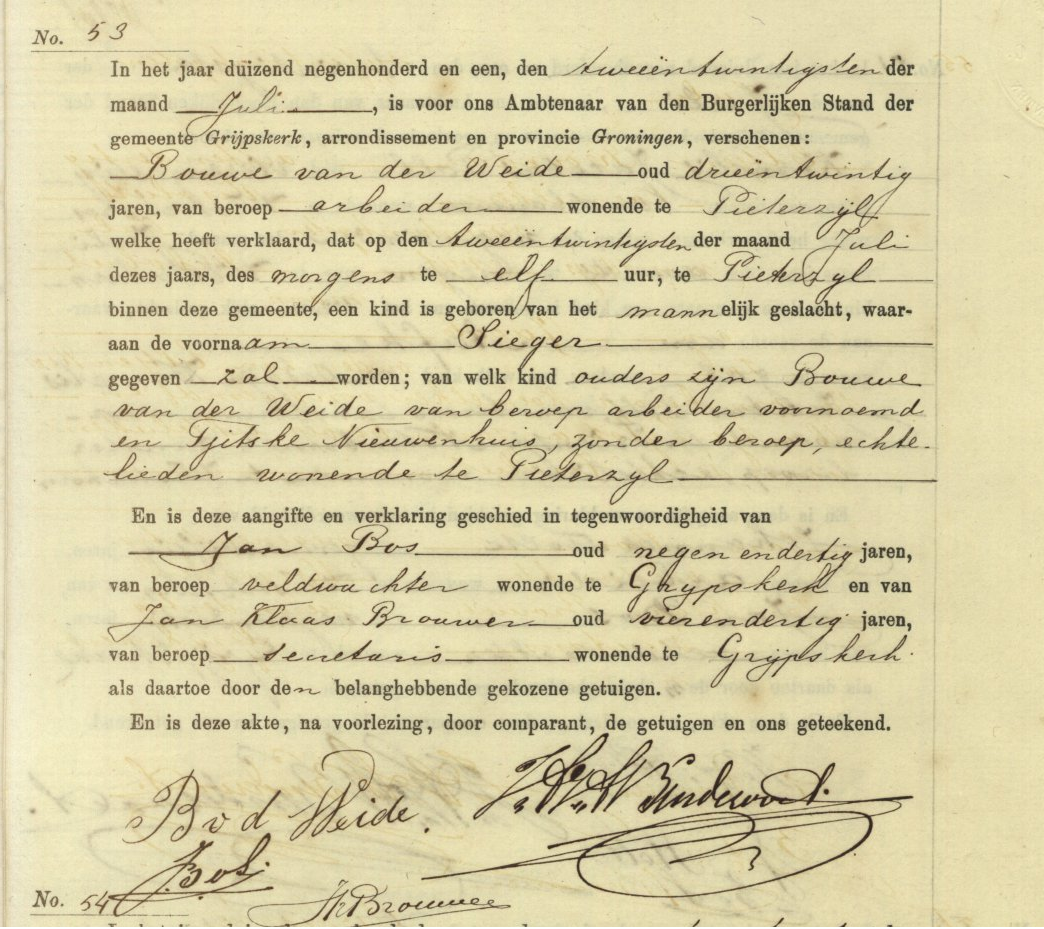 No. 53
In het jaar duizend negenhonderd en een, den tweeëntwintigsten der
maand Juli, is voor ons Ambtenaar van den Burgerlijken Stand der
gemeente Grijpskerk, arrondissement en provincie Groningen, verschenen:
Bouwe van der Weide oud drieëntwintig
jaren, van beroep arbeider wonende te Pieterzijl
welke heeft verklaard, dat op den tweeëntwintigsten der maand Juli
dezes jaars, des morgens te elf uur, te Pieterzyl
binnen deze gemeente, een kind is geboren van het mannelijk geslacht, waar-
aan de voornaam Sieger
gegeven zal worden; van welk kind ouders zijn Bouwe
van der Weide van beroep arbeider voornoemd
en Tjitske Nieuwenhuis, zonder beroep, echte-
lieden wonende te Pieterzyl
En is deze aangifte en verklaring geschied in tegenwoordigheid van
Jan Bos oud negenendertig jaren,
van beroep veldwachter wonende te Grypskerk en van
Jan Klaas Brouwer oud vierendertig jaren,
van beroep secretaris wonende te Grijpskerk.
als daartoe door den belanghebbende gekozene getuigen.
En is deze akte, na voorlezing, door comparant, de getuigen en ons geteekend.
B v d Weide.
J. Bos
No. 54
JKBrouwer